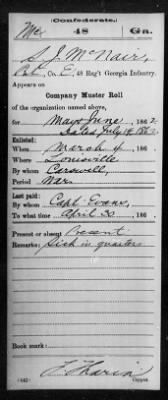 Confederate.
Mc 48 Ga.
S J McNair,
Pvt., Co. E, 48 Reg't Georgia Infantry.
Appears on
Company Muster Roll
of the organization named above,
for May & June, 1862.
Dated July 18, 1862
Enlisted:
When March 4, 186
Where Louisville
By whom Carswell,
Period War.
Last paid:
By whom Capt. Evans,
To what time April 30, 186
Present or absent Present
Remarks: Sick in quarters
Book mark:
(642) Copyist.